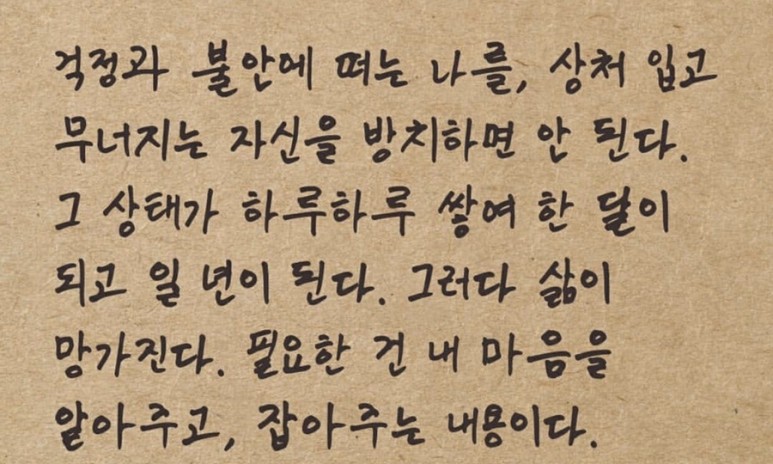 걱정과 불안에 떠는 나를, 상처 입고
무너지는 자신을 방치하면 안 된다.
그 상태가 하루하루 쌓여 한 달이
되고 일 년이 된다. 그러다 삶이
망가진다. 필요한 건 내 마음을
알아주고, 잡아주는 내용이다.